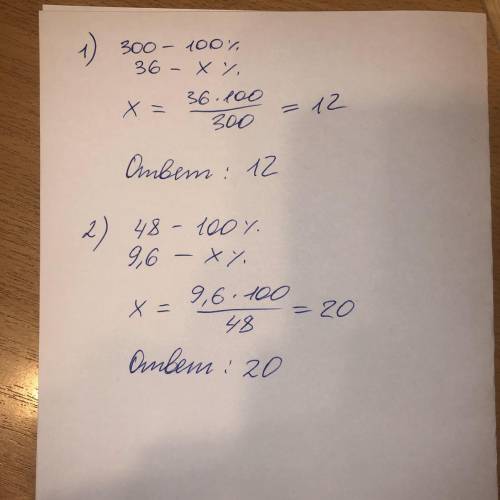 1) 300 – 100%
36 – x %.
x = 36·100/300 = 12
Ответ: 12
2) 48 – 100%.
9,6 – x %.
x = 9,6·100/48 = 20
Ответ: 20